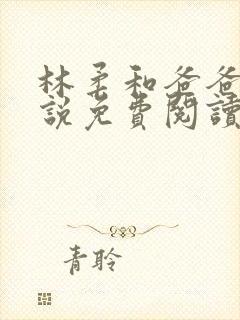 林柔和爸爸
說免費閱讀
青聆